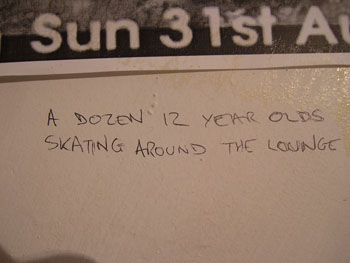 Sun 31st Au
A DOZEN 12 YEAR OLDS
SKATING AROUND THE LOUNGE